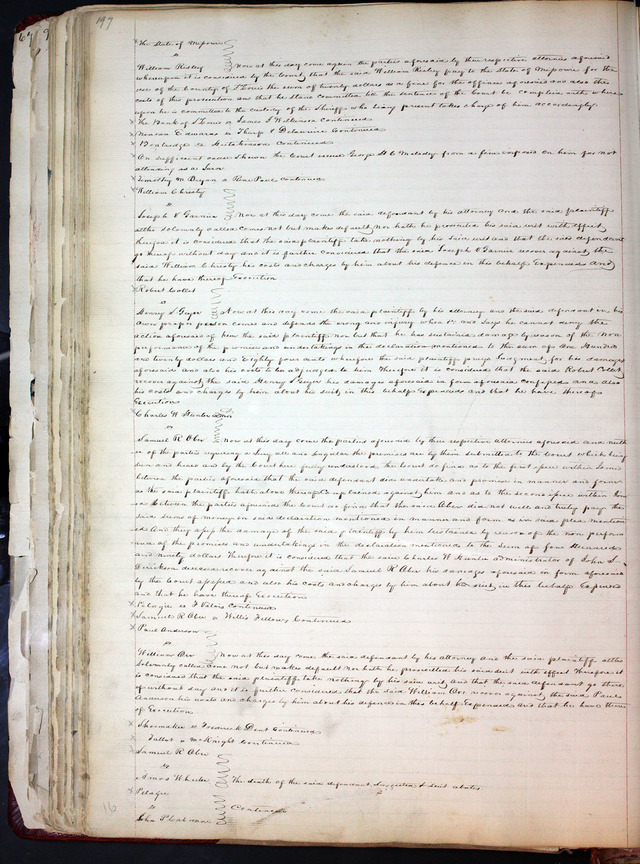 197
The State of Missouri
vs
William Risley Now at this day come again the parties aforesaid by their respective attornies aforesaid
whereupon it is considered by the Court that the said William Risley pay to the State of Missouri for the
use of the County of St Louis the sum of twenty dollars as a fine for the offence aforesaid and also the
costs of this prosecution and that he stand committed till the sentence of the Court be complied with where
upon he is committed to the custody of the Sheriff who being present takes charge of him accordingly.
The Bank of St Louis vs James I Wilkinson Continued
Edwards vs Tharp & Delaurier Continued
vs Hutchinson Continued
On sufficient cause shewn the Court remit George H C Melody from a fine imposed on him for not
attending as a Juror
Timothy M Bryan vs Rene Paul Continued
William Christy
vs
Joseph V Garnier Now at this day come the said defendant by his attorney and the said plaintiff
altho solemnly called comes not but makes default nor hath he prosecuted his said suit with effect
therefore it is considered that the said plaintiff take nothing by his said writ and that the said defendant
go thereof without day and it is further considered that the said Joseph V Garnier recover against the
said William Christy his costs and charges by him about his defence in this behalf Expended and
that he have thereof Execution
Robert Collet
vs
Henry S Geyer Now at this day come the said plaintiff by his attorney and the said defendant in his
own proper person comes and defends the wrong and injury when &c and says he cannot deny the
action aforesaid of him the said plaintiff nor but that he has sustained damage by reason of the non
performance of the promises and undertakings in the declaration mentioned to the sum of One Hundred
and twenty dollars and Eighty four cents wherefore the said plaintiff prays Judgment for his damages
aforesaid and also his costs to be adjudged to him Therefore it is considered that the said Robert Collet
recover against the said Henry S Geyer his damages aforesaid in form aforesaid confessed and also
his costs and charges by him about his suit in this behalf Expended and that he have thereof
Execution
Charles W Hunter Admr
vs
Samuel R Ober Now at this day come the parties aforesaid by their respective attornies aforesaid and neith
er of the parties requiring a Jury all and singular the premises are by them submitted to the Court which being
seen and heard and by the Court here fully understood the Court do find as to the first issue within Joined
between the parties aforesaid that the said defendant did undertake and promise in manner and form
as the said plaintiff hath above thereof Complained against him and as to the second issue within Join
ed between the parties aforesaid the Court do find that the said Ober did not well and truly pay the
said sums of money in said declaration mentioned in manner and form as in said plea mention
ed And they assess the damages of the said plaintiff by him sustained by reason of the non perform
ance of the promises and undertakings in the declaration mentioned to the sum of four Hundred
and ninety dollars Therefore it is considered that the said Charles W Hunter Administrator of John S.
deceased recover against the said Samuel R Ober his damages aforesaid in form aforesaid
by the Court assessed and also his costs and charges by him about his suit in this behalf Expended
and that he have thereof Execution
Pelagie vs F Valois Continued
Samuel R Ober vs Willis Fellows Continued
Paul Anderson
vs
William Orr Now at this day come the said defendant by his attorney and the said plaintiff altho
Solemnly called come not but makes default nor hath he prosecuted his said suit with effect Therefore it
is considered that the said plaintiff take nothing by his said writ and that the said defendant go there
of without day and it is further considered that the said William Orr recover against the said Paul
Anderson his costs and charges by him about his defence in this behalf Expended and that he have there
of Execution
Shoemaker vs Frederick Dent Continued
Talbot vs McKnight Continued
Samuel R Ober
vs
Amos Wheeler The death of the said defendant suggested & suit abates
Pelagie
vs Continued
John P Cabanne
16